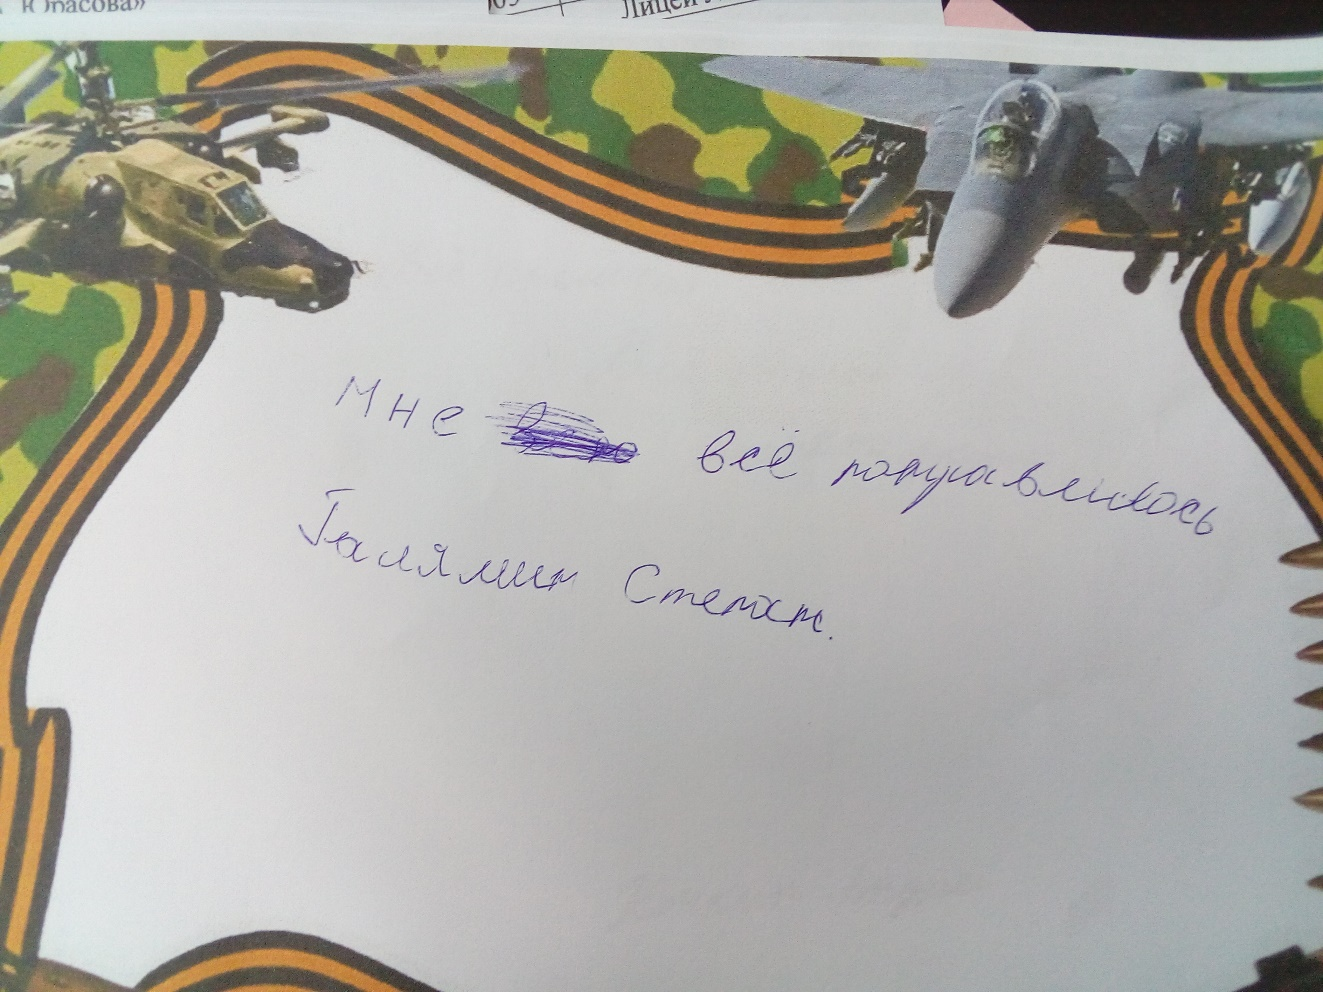 Юрасова»
Лицей
Мне всё понравилось
Галямин Степан.